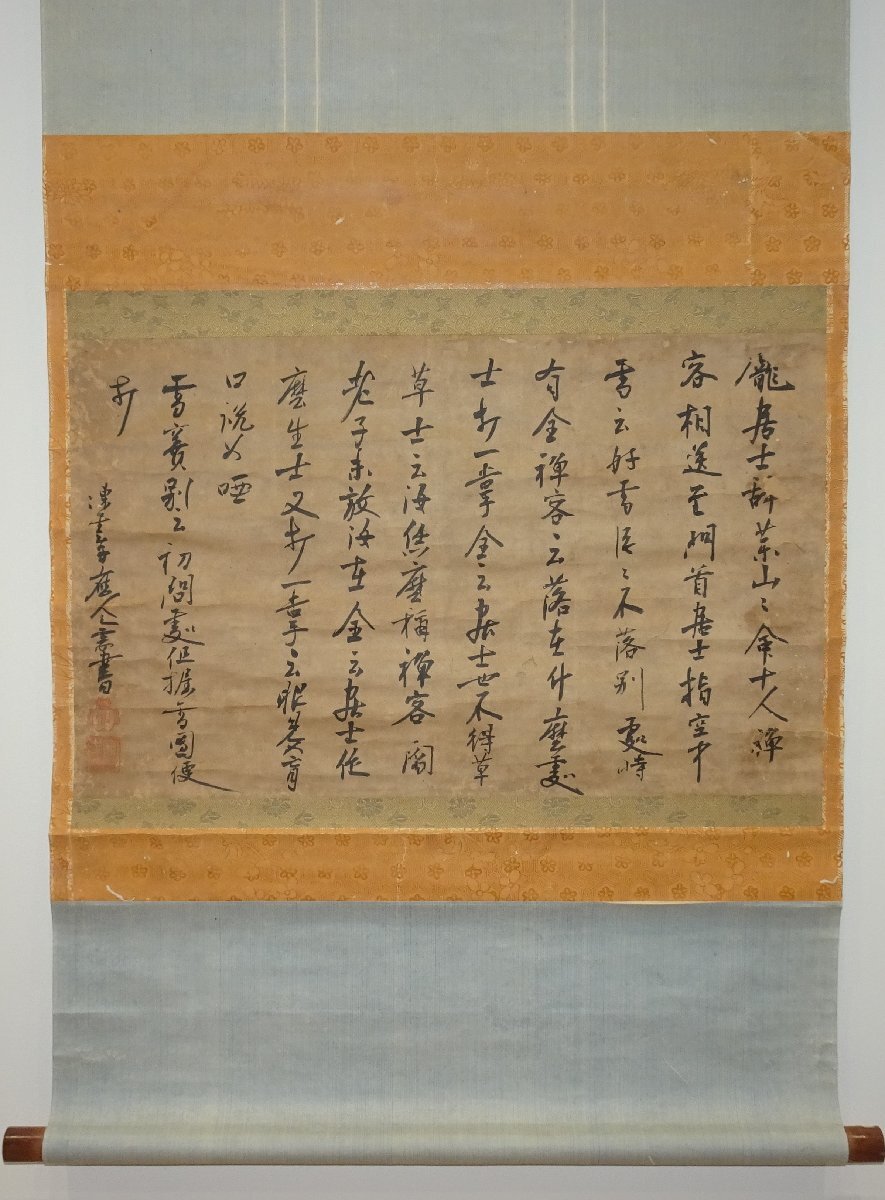 龐居士辞藥山〻命十人禪
客相送至門首居士指空中
雪云好雪片〻不落別處時
有全禪客云落在什麼處
士打一掌全云居士也不得草
草士云汝恁麼稱禪客閻
老子未放汝在全云居士作
麼生士又打一掌云眼見如盲
口說如啞
雪竇別云初問處但握雪團便
打
應人需書